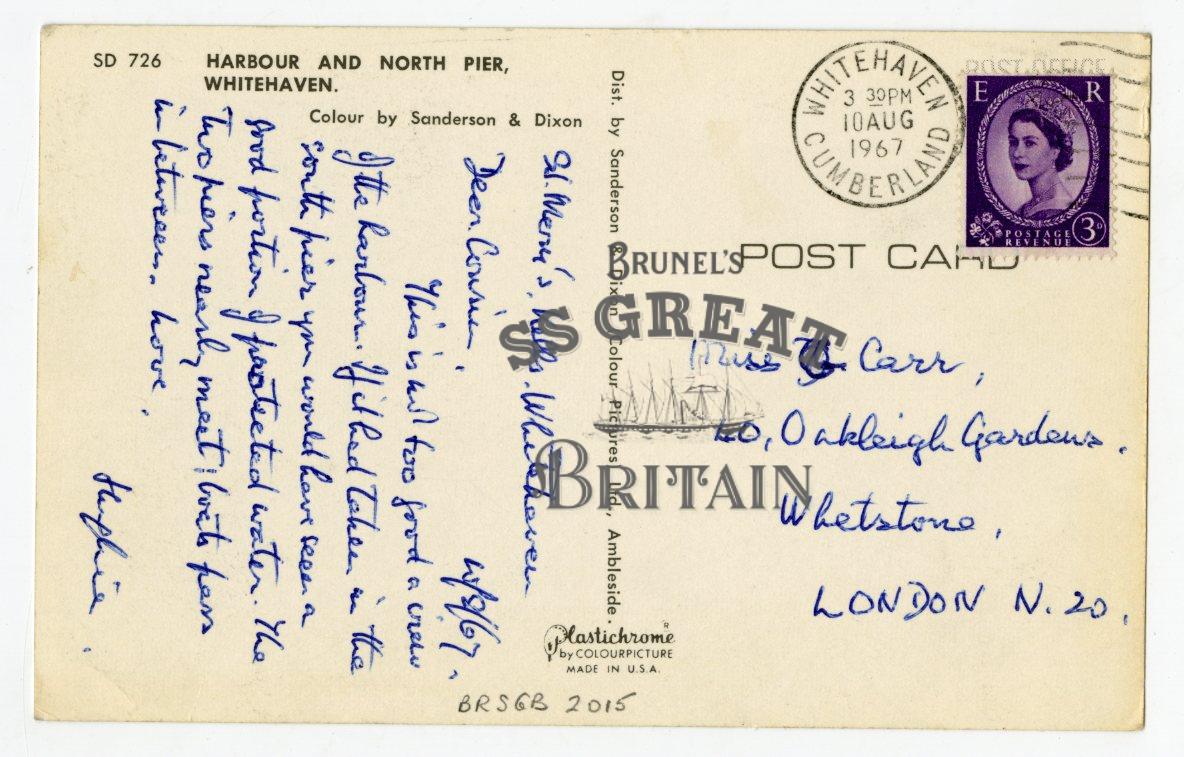 SD 726 HARBOUR AND NORTH PIER,
WHITEHAVEN.
Colour by Sanderson & Dixon
St. Mary's, Kells, Whitehaven
Dear Cousin,
10/8/67.
This is not too good a view
of the harbour. If it had taken in the
south pier you would have seen a
good portion of protected water. The
two piers nearly meet & boats pass
in between. Love,
Hughie.
Dist. by Sanderson & Dixon Colour Pictures Ltd., Ambleside.
Plastichrome R
by COLOURPICTURE
MADE IN U.S.A.
BRSGB 2015
WHITEHAVEN
3 30PM
10 AUG
1967
CUMBERLAND
POST OFFICE
E R
POSTAGE
REVENUE
3D
POST CARD
BRUNEL'S
SS GREAT
BRITAIN
Miss Carr,
40, Oakleigh Gardens.
Whetstone,
LONDON N. 20.